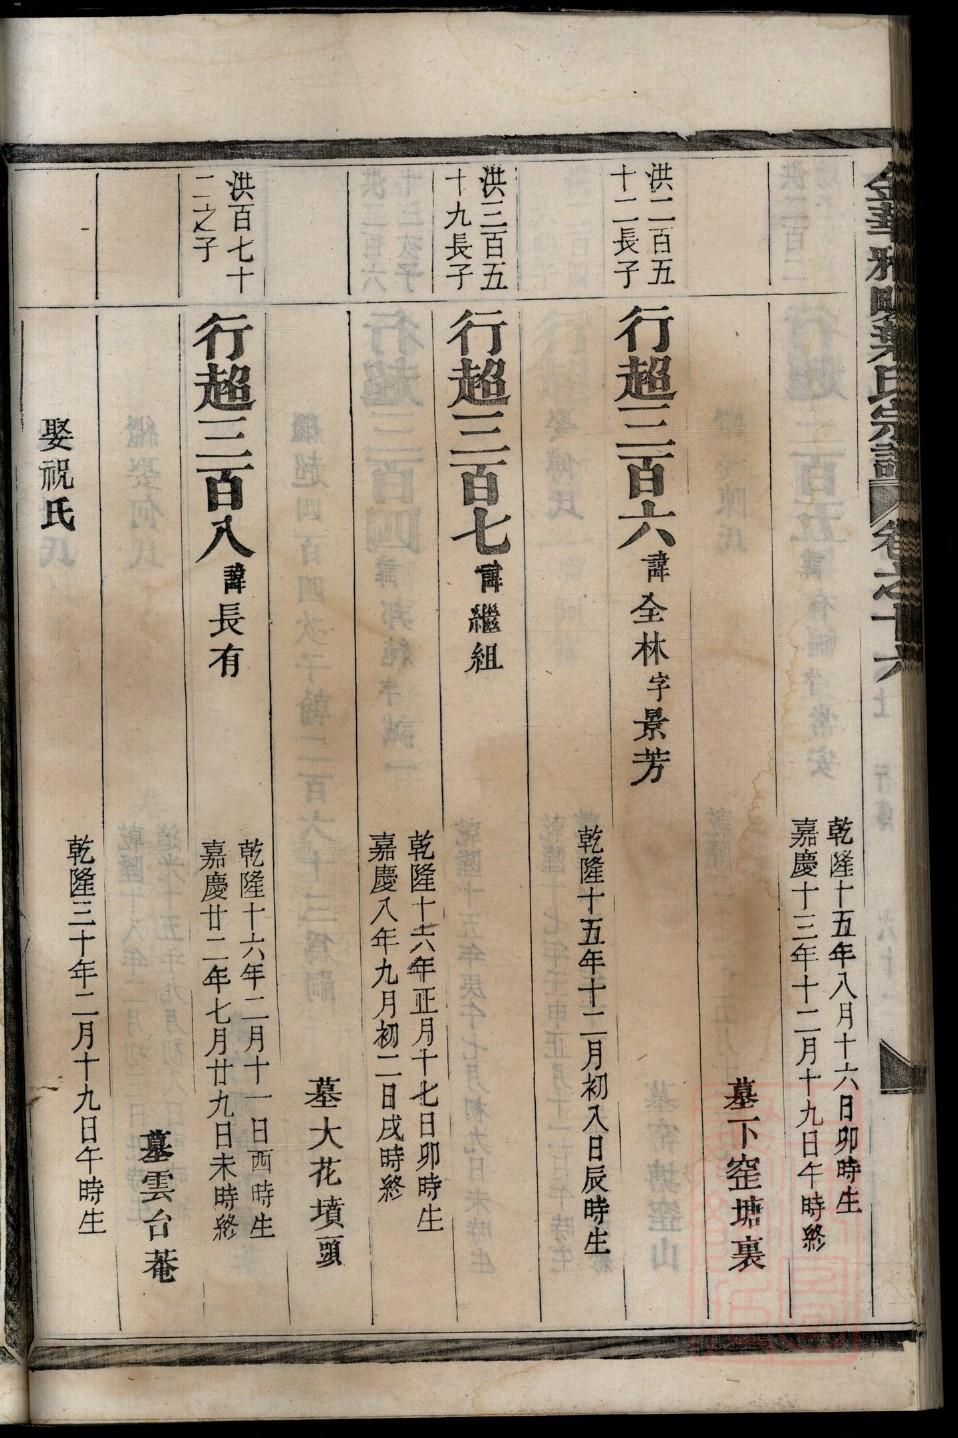 金華雅畈葉氏宗譜 卷之十六
乾隆十五年八月十六日卯時生
嘉慶十三年十二月十九日午時終
墓下窐塘裏
洪二百五
十二長子
行超三百六 諱全林字景芳
乾隆十五年十二月初八日辰時生
洪三百五
十九長子
行超三百七 諱繼組
乾隆十六年正月十七日卯時生
嘉慶八年九月初二日戌時終
墓大花墳頭
洪百七十
二之子
行超三百八 諱長有
乾隆十六年二月十一日酉時生
嘉慶廿二年七月廿九日未時終
墓雲台菴
娶祝氏
乾隆三十年二月十九日午時生